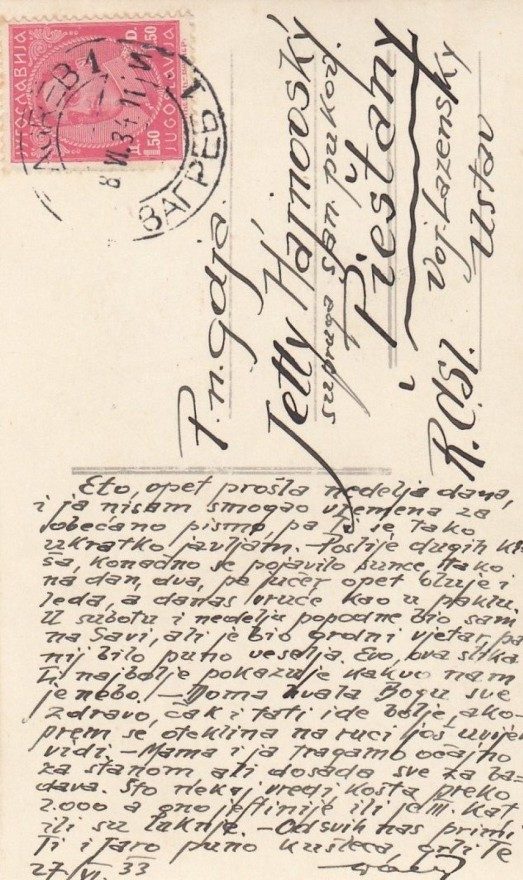 ЈУГОСЛАВИЈА
D. 1.50
1.50 JUGOSLAVIJA
ЗАГРЕБ 1
P. n. gdja.
Jetty Hájnovský
supruga pukov.
Piešťany
Voj. Lazensky
Ustav
R. ČSl.
Eto, opet prošla nedelja dana,
i ja nisam smogao vremena za
obećano pismo, pa ti se tako
ukratko javljam. - Poslije dugih ki
ša, konačno se pojavilo sunce, tako
na dan, dva, pa jučer opet oluje i
leda, a danas vruće kao u paklu.
U subotu i nedelju popodne bio sam
na Savi, ali je bio grdni vjetar, pa
nij bilo puno veselja. Evo, ova slika
Ti najbolje pokazuje kakvo nam
je nebo. - Doma hvala Bogu sve
zdravo, čak i tati ide bolje, ako
prem se oteklina na ruci još uvijek
vidi. - Mama i ja tragamo očajno
za stanom ali dosada sve za ba-
dava. Što nekaj vredi, košta preko
2.000 a ono jeftinije ili je III. kat
ili su luknje. - Od svih nas primi
Ti i Jaro puno kušleca, grli Te
27/VI. 33